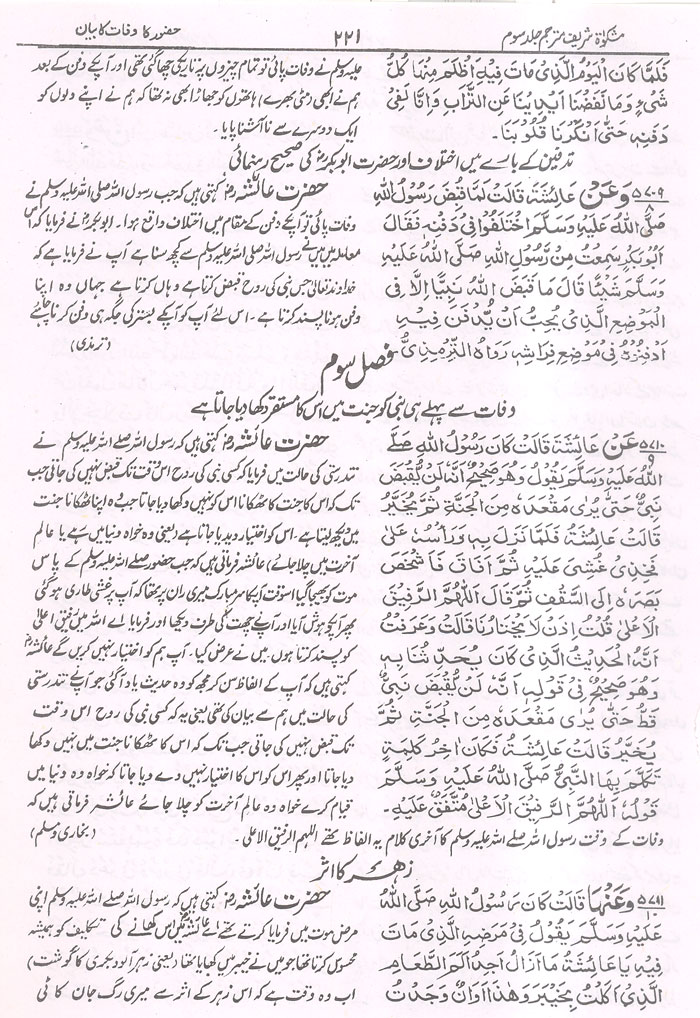 مشکوٰۃ شریف مترجم جلد سوم
۲۲۱
حضور کا وفات کا بیان
فَلَمَّا كَانَ الْيَوْمُ الَّذِي مَاتَ فِيْهِ أَظْلَمَ مِنْهَا كُلُّ
شَيْءٍ وَمَا نَفَضْنَا أَيْدِيَنَا عَنِ التُّرَابِ وَإِنَّا لَفِيْ
دَفْنِهٖ حَتّٰى أَنْكَرْنَا قُلُوْبَنَا۔
علیہ وسلم نے وفات پائی تو تمام چیزوں پر تاریکی چھا گئی تھی اور آپکے دفن کے بعد
ہم نے ابھی (مٹی بھرے) ہاتھوں کو جھاڑا بھی نہ تھا کہ ہم نے اپنے دلوں کو
ایک دوسرے سے نا آشنا پایا۔
تدفین کے بارے میں اختلاف اور حضرت ابوبکرؓ کی صحیح رہنمائی
۵۷۰۹
۸
وَعَنْ عَائِشَةَ قَالَتْ لَمَّا قُبِضَ رَسُوْلُ اللهِ
صَلَّى اللهُ عَلَيْهِ وَسَلَّمَ اخْتَلَفُوْا فِيْ دَفْنِهٖ فَقَالَ
أَبُوْ بَكْرٍ سَمِعْتُ مِنْ رَّسُوْلِ اللهِ صَلَّى اللهُ عَلَيْهِ
وَسَلَّمَ شَيْئًا قَالَ مَا قَبَضَ اللهُ نَبِيًّا إِلَّا فِي
الْمَوْضِعِ الَّذِيْ يُحِبُّ أَنْ يُّدْفَنَ فِيْهِ
اَدْفِنُوْهُ فِيْ مَوْضِعِ فِرَاشِهٖ رَوَاهُ التِّرْمِذِيُّ
حضرت عائشہؓ کہتی ہیں کہ جب رسول اللہ صلی اللہ علیہ وسلم نے
وفات پائی تو آپکے دفن کے مقام میں اختلاف واقع ہوا۔ ابوبکرؓ نے فرمایا کہ اس
معاملہ میں میں نے رسول اللہ صلی اللہ علیہ وسلم سے کچھ سنا ہے آپ نے فرمایا ہے کہ
خداوند تعالیٰ جس نبی کی روح قبض کرتا ہے وہاں کرتا ہے جہاں وہ اپنا
دفن ہونا پسند کرتا ہے۔ اس لئے آپ کو آپکے بستر کی جگہ ہی دفن کرنا چاہئے
(ترمذی)
فصل سوم
وفات سے پہلے ہی نبی کو جنت میں اس کا مستقر دکھا دیا جاتا ہے
۵۷۱۰
۹
عَنْ عَائِشَةَ قَالَتْ كَانَ رَسُوْلُ اللهِ صَلَّى
اللهُ عَلَيْهِ وَسَلَّمَ يَقُوْلُ وَهُوَ صَحِيْحٌ أَنَّهٗ لَنْ يُّقْبَضَ
نَبِيٌّ حَتّٰى يُرٰى مَقْعَدَهٗ مِنَ الْجَنَّةِ ثُمَّ يُخَيَّرُ
قَالَتْ عَائِشَةُ فَلَمَّا نَزَلَ بِهٖ وَرَأْسُهٗ عَلٰى
فَخِذِيْ غُشِيَ عَلَيْهِ ثُمَّ أَفَاقَ فَأَشْخَصَ
بَصَرَهٗ إِلَى السَّقْفِ ثُمَّ قَالَ اَللّٰهُمَّ الرَّفِيْقَ
الْأَعْلٰى قُلْتُ إِذَنْ لَّا يَخْتَارُنَا قَالَتْ وَعَرَفْتُ
أَنَّهُ الْحَدِيْثُ الَّذِيْ كَانَ يُحَدِّثُنَا بِهٖ
وَهُوَ صَحِيْحٌ فِيْ قَوْلِهٖ أَنَّهٗ لَنْ يُّقْبَضَ نَبِيٌّ
قَطُّ حَتّٰى يُرٰى مَقْعَدَهٗ مِنَ الْجَنَّةِ ثُمَّ
يُخَيَّرُ قَالَتْ عَائِشَةُ فَكَانَ اٰخِرُ كَلِمَةٍ
تَكَلَّمَ بِهَا النَّبِيُّ صَلَّى اللهُ عَلَيْهِ وَسَلَّمَ
قَوْلُهٗ اَللّٰهُمَّ الرَّفِيْقَ الْأَعْلٰى مُتَّفَقٌ عَلَيْهِ۔
حضرت عائشہؓ کہتی ہیں کہ رسول اللہ صلے اللہ علیہ وسلم نے
تندرستی کی حالت میں فرمایا کہ کسی نبی کی روح اسوقت تک قبض نہیں کی جاتی جب
تک کہ اس کا جنت کا ٹھکانا اس کو نہیں دکھا دیا جاتا جب وہ اپنا ٹھکانا جنت
میں دیکھ لیتا ہے۔ اس کو اختیار دیدیا جاتا ہے (یعنی وہ خواہ دنیا میں رہے یا عالم
آخرت میں چلا جائے) عائشہؓ فرماتی ہیں کہ جب حضور صلے اللہ علیہ وسلم کے پاس
موت کو بھیجا گیا اسوقت آپکا سر مبارک میری ران پر تھا کہ آپ پر غشی طاری ہو گئی
پھر آپکو ہوش آیا اور آپنے چھت کی طرف دیکھا اور فرمایا اے اللہ میں رفیق اعلیٰ
کو پسند کرتا ہوں۔ میں نے عرض کیا۔ آپ ہم کو اختیار نہیں کریں گے عائشہؓ
کہتی ہیں کہ آپ کے الفاظ سن کر مجھ کو وہ حدیث یاد آ گئی جو آپنے تندرستی
کی حالت میں ہم سے بیان کی تھی یعنی یہ کہ کسی نبی کی روح اس وقت
تک قبض نہیں کی جاتی جب تک کہ اس کا ٹھکانا جنت میں نہیں دکھا
دیا جاتا اور پھر اس کو اس کا اختیار نہیں دے دیا جاتا کہ خواہ وہ دنیا میں
قیام کرے خواہ وہ عالم آخرت کو چلا جائے عائشہ فرماتی ہیں کہ
وفات کے وقت رسول اللہ صلے اللہ علیہ وسلم کا آخری کلام یہ الفاظ تھے اللہم الرفیق الاعلی۔ (بخاری و مسلم)
زہر کا اثر
۵۷۱۱
۱۰
وَعَنْهَا قَالَتْ كَانَ رَسُوْلُ اللهِ صَلَّى اللهُ
عَلَيْهِ وَسَلَّمَ يَقُوْلُ فِيْ مَرَضِهِ الَّذِيْ مَاتَ
فِيْهِ يَا عَائِشَةُ مَا أَزَالُ أَجِدُ أَلَمَ الطَّعَامِ
الَّذِيْ أَكَلْتُ بِخَيْبَرَ وَهٰذَا أَوَانُ وَجَدْتُّ
حضرت عائشہؓ کہتی ہیں کہ رسول اللہ صلے اللہ علیہ وسلم اپنی
مرض موت میں فرمایا کرتے تھے اے عائشہ میں اس کھانے کی تکلیف کو ہمیشہ
محسوس کرتا تھا جو میں نے خیبر میں کھایا تھا (یعنی زہر آلود بکری کا گوشت)
اب وہ وقت ہے کہ اس زہر کے اثر سے میری رگ جان کا ٹی